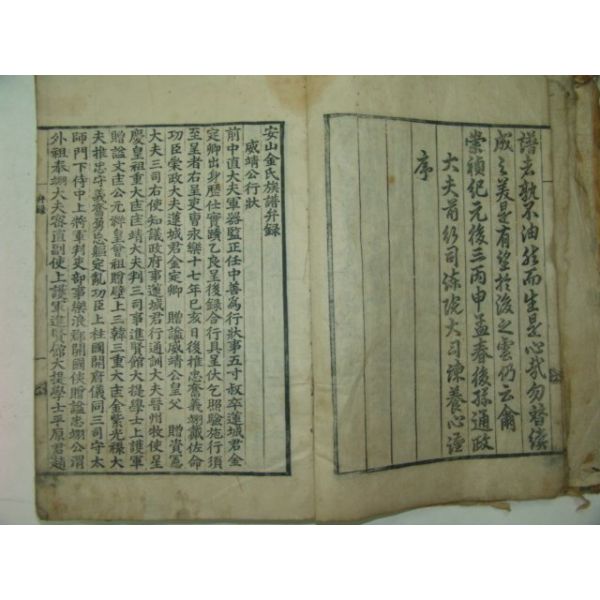 譜者孰不油然而生是心哉勿替續
成之美是有望於後之雲仍云爾
崇禎紀元後三丙申孟春後孫通政
大夫前行司諫院大司諫養心謹
序
安山金氏族譜弁錄
威靖公行狀
前中直大夫軍器監正任中善為行狀事五寸叔卒蓮城君金
定卿出身歷仕實蹟乙良呈後錄合行具呈伏乞照驗施行須
至呈者右呈吏曹永樂十七年己亥日後推忠奮義翊戴佐命
功臣崇政大夫蓮城君金定卿 贈謚威靖公皇父 贈資憲
大夫三司右使知議政府事蓮城君行通訓大夫晉州牧使星
慶皇祖重大匡匡靖大夫判三司事進賢館大提學上護軍
贈謚文匡公元祥皇曾祖贈壁上三韓三重大匡金紫光祿大
夫推忠守義奮勇忠軀定亂功臣上柱國開府儀同三司守太
師門下侍中上將軍判吏部事樂浪郡開國侯贈謚忠翊公渭
外祖奉翊大夫密直副使上護軍進賢館大提學士平原君趙
弁錄